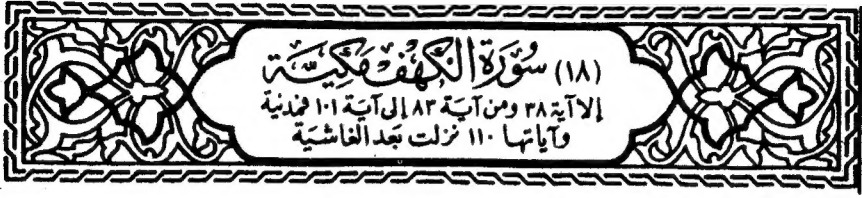 (١٨) سُورَة الكهْف مَكيَّة
إلا آية ٣٨ ومن آية ٨٣ إلى آية ١٠١ فمدنية
وآياتها ١١٠ نزلت بعد الغاشية